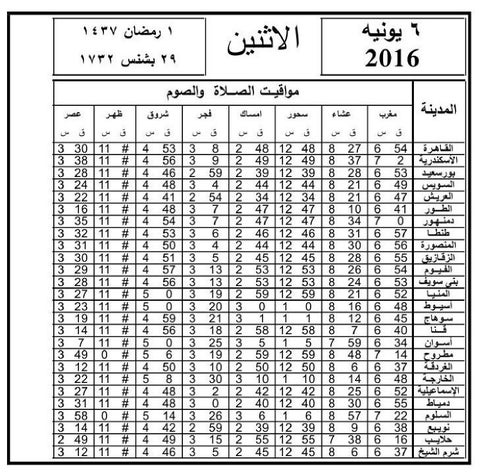 ٦ يونيه
2016
الاثنين
١ رمضان ١٤٣٧
٢٩ بشنس ١٧٣٢
المدينة مواقيت الصلاة والصوم
مغرب عشاء سحور امساك فجر شروق ظهر عصر
ق س ق س ق س ق س ق س ق س ق س ق س
القاهرة 54 6 27 8 48 12 48 2 8 3 53 4 # 11 30 3
الأسكندرية 2 7 37 8 49 12 49 2 9 3 56 4 # 11 38 3
بورسعيد 53 6 28 8 39 12 39 2 59 2 46 4 # 11 28 3
السويس 49 6 21 8 44 12 44 2 4 3 48 4 # 11 24 3
العريش 47 6 21 8 34 12 34 2 54 2 41 4 # 11 22 3
الطور 41 6 10 8 47 12 47 2 7 3 48 4 # 11 16 3
دمنهور 0 7 34 8 47 12 47 2 7 3 54 4 # 11 35 3
طنطا 57 6 31 8 46 12 46 2 6 3 53 4 # 11 32 3
المنصورة 56 6 30 8 44 12 44 2 4 3 50 4 # 11 31 3
الزقازيق 55 6 28 8 45 12 45 2 5 3 51 4 # 11 30 3
الفيوم 54 6 26 8 53 12 53 2 13 3 57 4 # 11 29 3
بنى سويف 53 6 24 8 53 12 53 2 13 3 56 4 # 11 28 3
المنيا 52 6 21 8 59 12 59 2 19 3 0 5 # 11 27 3
أسيوط 48 6 16 8 0 1 0 3 20 3 0 5 # 11 23 3
سوهاج 45 6 12 8 1 1 1 3 21 3 59 4 # 11 19 3
قنا 40 6 7 8 58 12 58 2 18 3 56 4 # 11 14 3
أسوان 34 6 59 7 5 1 5 3 25 3 0 5 # 11 7 3
مطروح 14 7 48 8 59 12 59 2 19 3 6 5 # 0 49 3
الغردقة 37 6 6 8 50 12 50 2 10 3 50 4 # 11 12 3
الخارجة 48 6 14 8 10 1 10 3 30 3 8 5 # 11 22 3
الإسماعيلية 52 6 25 8 42 12 42 2 2 3 48 4 # 11 27 3
دمياط 55 6 30 8 40 12 40 2 0 3 48 4 # 11 31 3
السلوم 22 7 57 8 6 1 6 3 26 3 14 5 # 0 58 3
نويبع 38 6 9 8 39 12 39 2 59 2 42 4 # 11 14 3
حلايب 16 6 38 7 55 12 55 2 15 3 49 4 # 11 49 2
شرم الشيخ 37 6 6 8 45 12 45 2 5 3 46 4 # 11 12 3